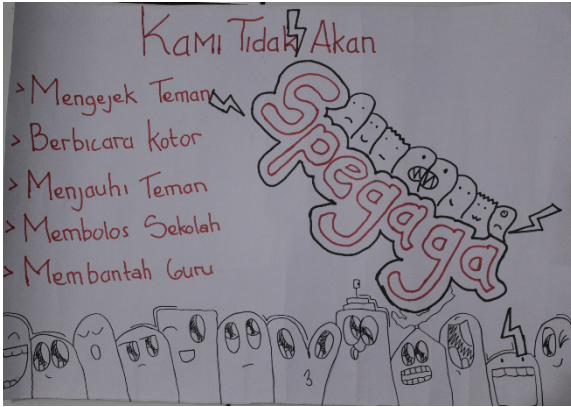 Kami Tidak Akan
> Mengejek Teman
> Berbicara Kotor
> Menjauhi Teman
> Membolos Sekolah
> Membantah Guru
Spegaga